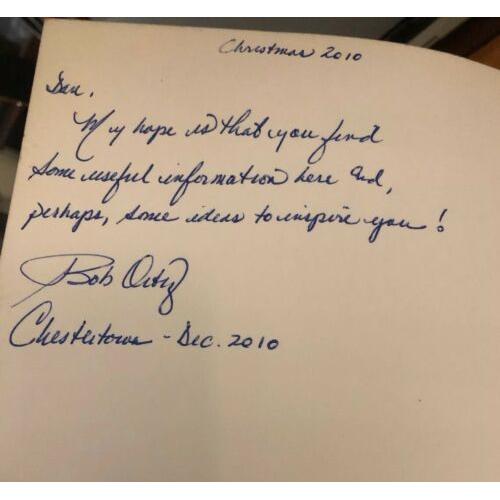 Christmas 2010
Dan,
My hope is that you find
some useful information here and,
perhaps, some ideas to inspire you!
Bob Ortiz
Chestertown - Dec. 2010